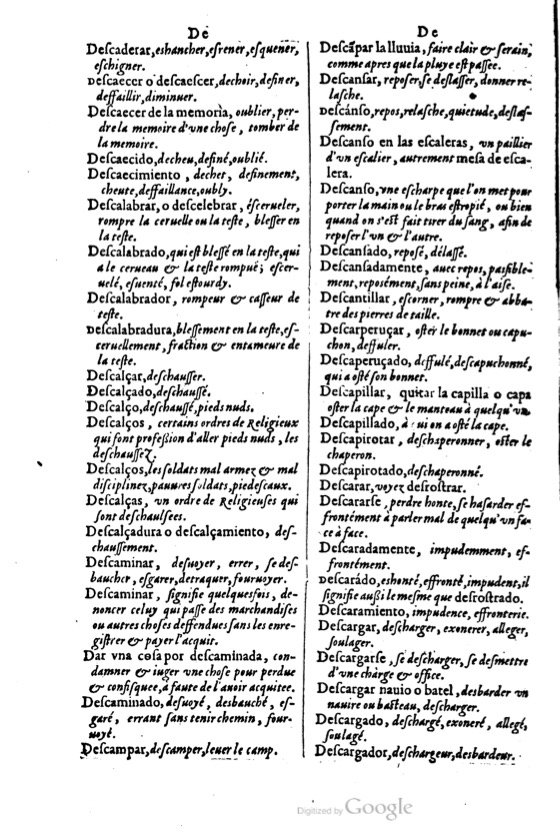 De
Deſcaderar, eshancher, eſrener, eſquener,
eſchigner.
Deſcaecer o deſcaeſcer, dechoir, definer,
deffaillir, diminuer.
Deſcaecer de la memoria, oublier, per-
dre la memoire d'vne choſe, tomber de
la memoire.
Deſcaecido, decheu, definé, oublié.
Deſcaecimiento, dechet, definement,
cheute, deffaillance, oubly.
Deſcalabrar, o deſcelebrar, éſcerueler,
rompre la ceruelle ou la teſte, bleſſer en
la teſte.
Deſcalabrado, qui eſt bleſſé en la teſte, qui
a le cerueau & la teſte rompuë; eſcer-
uelé, eſuenté, fol eſtourdy.
Deſcalabrador, rompeur & caſſeur de
teſte.
Deſcalabradura, bleſſement en la teſte, eſ-
ceruellement, fraction & entameure de
la teſte.
Deſcalçar, deſchauſſer.
Deſcalçado, deſchauſſé.
Deſcalço, deſchauſſé, pieds nuds.
Deſcalços, certains ordres de Religieux
qui font profeßion d'aller pieds nuds, les
deſchauſſez.
Deſcalços, les ſoldats mal armez & mal
diſciplinez, pauures ſoldats, piedeſcaux.
Deſcalças, vn ordre de Religieuſes qui
ſont deſchauſſees.
Deſcalçadura o deſcalçamiento, deſ-
chauſſement.
Deſcaminar, deſuoyer, errer, ſe deſ-
baucher, eſgarer, detraquer, fouruoyer.
Deſcaminar, ſignifie quelquesfois, de-
noncer celuy qui paſſe des marchandiſes
ou autres choſes deffendues ſans les enre-
giſtrer & payer l'acquit.
Dar vna coſa por deſcaminada, con-
damner & iuger vne choſe pour perdue
& confiſquee, à faute de l'auoir acquitee.
Deſcaminado, deſuoyé, desbauché, eſ-
garé, errant ſans tenir chemin, four-
uoyé.
Deſcampar, deſcamper, leuer le camp.
De
Deſcãpar la lluuia, faire clair & ſerain,
comme apres que la pluye eſt paſſee.
Deſcanſar, repoſer, ſe delaſſer, donner re-
laſche.
Deſcánſo, repos, relaſche, quietude, delaſ-
ſement.
Deſcanſo en las eſcaleras, vn paillier
d'vn eſcalier, autrement meſa de eſca-
lera.
Deſcanſo, vne eſcharpe que l'on met pour
porter la main ou le bras eſtropié, ou bien
quand on s'eſt fait tirer du ſang, afin de
repoſer l'vn & l'autre.
Deſcanſado, repoſé, délaſſé.
Deſcanſadamente, auec repos, paiſible-
ment, repoſément, ſans peine, à l'aiſe.
Deſcantillar, eſcorner, rompre & abba-
tre des pierres de taille.
Deſcarperuçar, oſter le bonnet ou capu-
chon, deffuler.
Deſcaperuçado, deffulé, deſcapuchonné,
qui a oſté ſon bonnet.
Deſcapillar, quitar la capilla o capa
oſter la cape & le manteau à quelqu'vn
Deſcapillado, à ui on a oſté la cape.
Deſcapirotar, deſchaperonner, oſter le
chaperon.
Deſcapirotado, deſchaperonné.
Deſcarar, voyez desroſtrar.
Deſcararſe, perdre honte, ſe haſarder eſ-
frontément à parler mal de quelqu'vn fa-
ce à face.
Deſcaradamente, impudemment, eſ-
frontément.
Deſcarádo, eshonté, effronté, impudent, il
ſignifie außi le meſme que deſroſtrado.
Deſcaramiento, impudence, effronterie.
Deſcargar, deſcharger, exonerer, alleger,
ſoulager.
Deſcargarſe, ſe deſcharger, ſe deſmettre
d'vne charge & office.
Deſcargar nauio o batel, desbarder vn
nauire ou baſteau, deſcharger.
Deſcargado, deſchargé, exoneré, allegé,
ſoulagé.
Deſcargador, deſchargeur, desbardeur.
Digitized by Google